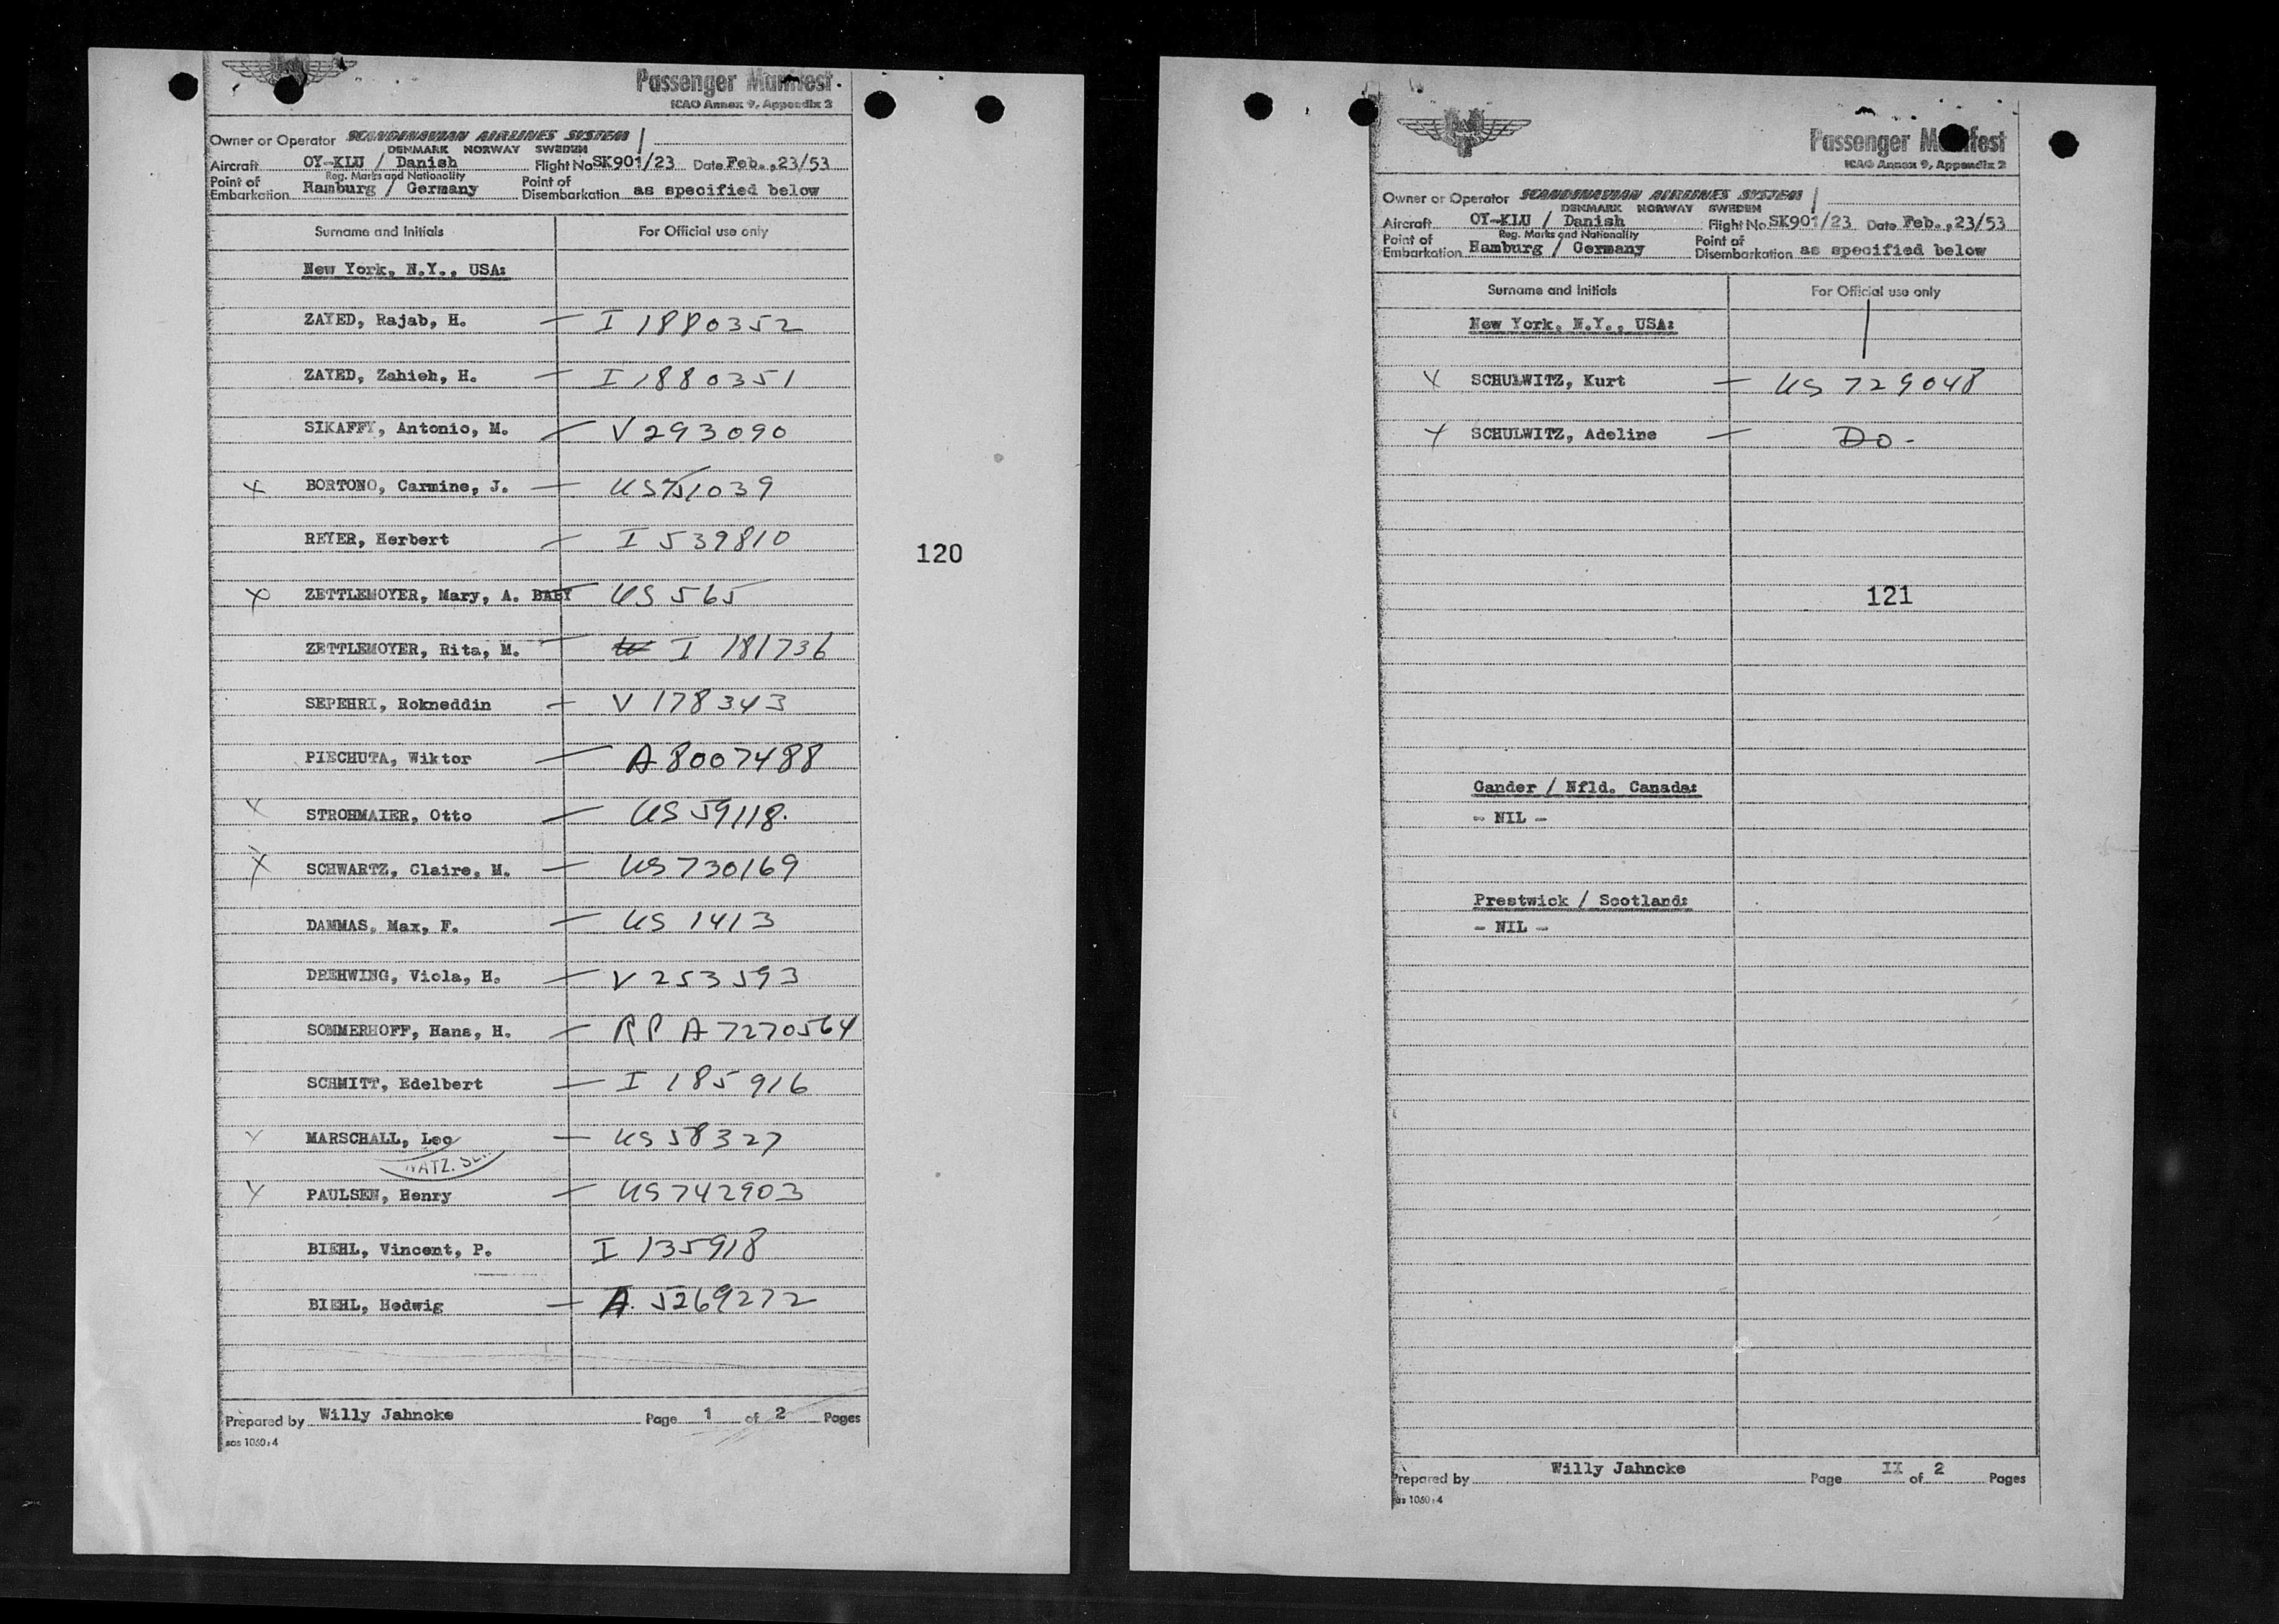 Passenger Manifest.
ICAO Annex 9, Appendix 2
Owner or Operator SCANDINAVIAN AIRLINES SYSTEM
DENMARK NORWAY SWEDEN
Aircraft OY-KLU / Danish Flight No SK901/23 Date Feb.,23/53
Reg. Marks and Nationality
Point of Embarkation Hamburg / Germany Point of Disembarkation as specified below
Surname and Initials For Official use only
New York, N.Y., USA:
ZAYED, Rajab, H. — I 1880352
ZAYED, Zahieh, H. — I 1880351
SIKAFFY, Antonio, M. — V 293090
X BORTONO, Carmine, J. — US 751039
REYER, Herbert — I 539810
X ZETTLEMOYER, Mary, A. BABY — US 565
ZETTLEMOYER, Rita, M. — I 181736
SEPEHRI, Rokneddin — V 178343
PIECHUTA, Wiktor — A 8007488
X STROHMAIER, Otto — US 59118.
X SCHWARTZ, Claire, M. — US 730169
DAMMAS, Max, F. — US 1413
DREHWING, Viola, H. — V 253593
SOMMERHOFF, Hans, H. — RP A 7270564
SCHMITT, Edelbert — I 185916
X MARSCHALL, Leo — US 58327
NATZ.
X PAULSEN, Henry — US 742903
BIEHL, Vincent, P. I 135918
BIEHL, Hedwig — A 5269272
Prepared by Willy Jahncke Page 1 of 2 Pages
sas 1060:4
120
SAS
Passenger Manifest
ICAO Annex 9, Appendix 2
Owner or Operator SCANDINAVIAN AIRLINES SYSTEM
DENMARK NORWAY SWEDEN
Aircraft OY-KLU / Danish Flight No SK901/23 Date Feb.,23/53
Reg. Marks and Nationality
Point of Embarkation Hamburg / Germany Point of Disembarkation as specified below
Surname and Initials For Official use only
New York, N.Y., USA:
X SCHULWITZ, Kurt — US 729048
X SCHULWITZ, Adeline — Do -
121
Gander / Nfld. Canada:
- NIL -
Prestwick / Scotland:
- NIL -
Prepared by Willy Jahncke Page II of 2 Pages
as 1060:4